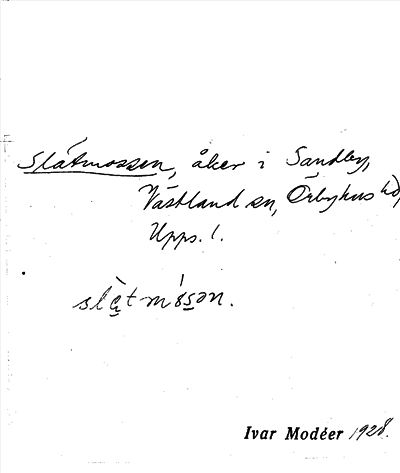 Slåtmossen, åker i Sandby,
Västland sn, Örbyhus hd,
Upps. l.
slὰ̤tmósən.
Ivar Modéer 1928.